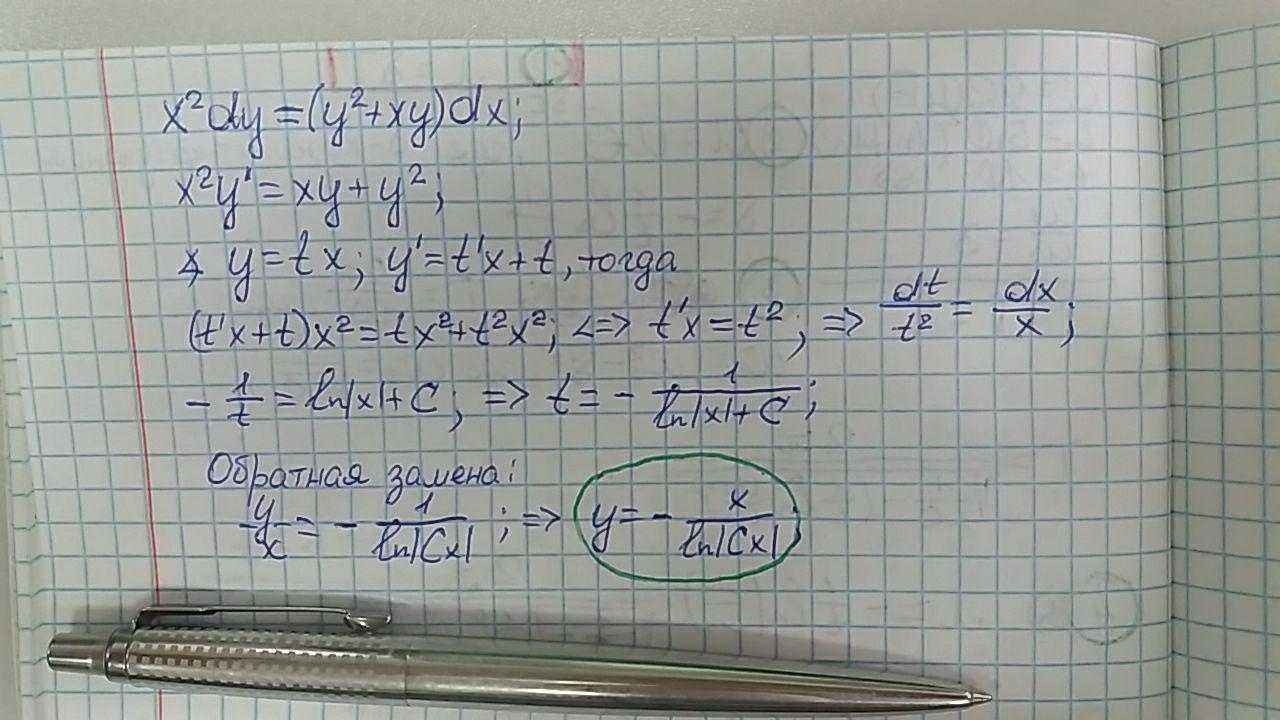 x²dy=(y²+xy)dx;
x²y'=xy+y²;
y=tx; y'=t'x+t, тогда
(t'x+t)x²=tx²+t²x²; <=> t'x=t²; => dt/t² = dx/x;
- 1/t = ln|x|+C; => t = - 1/(ln|x|+C);
Обратная замена:
y/x = - 1/ln|Cx|; => y = - x/ln|Cx|